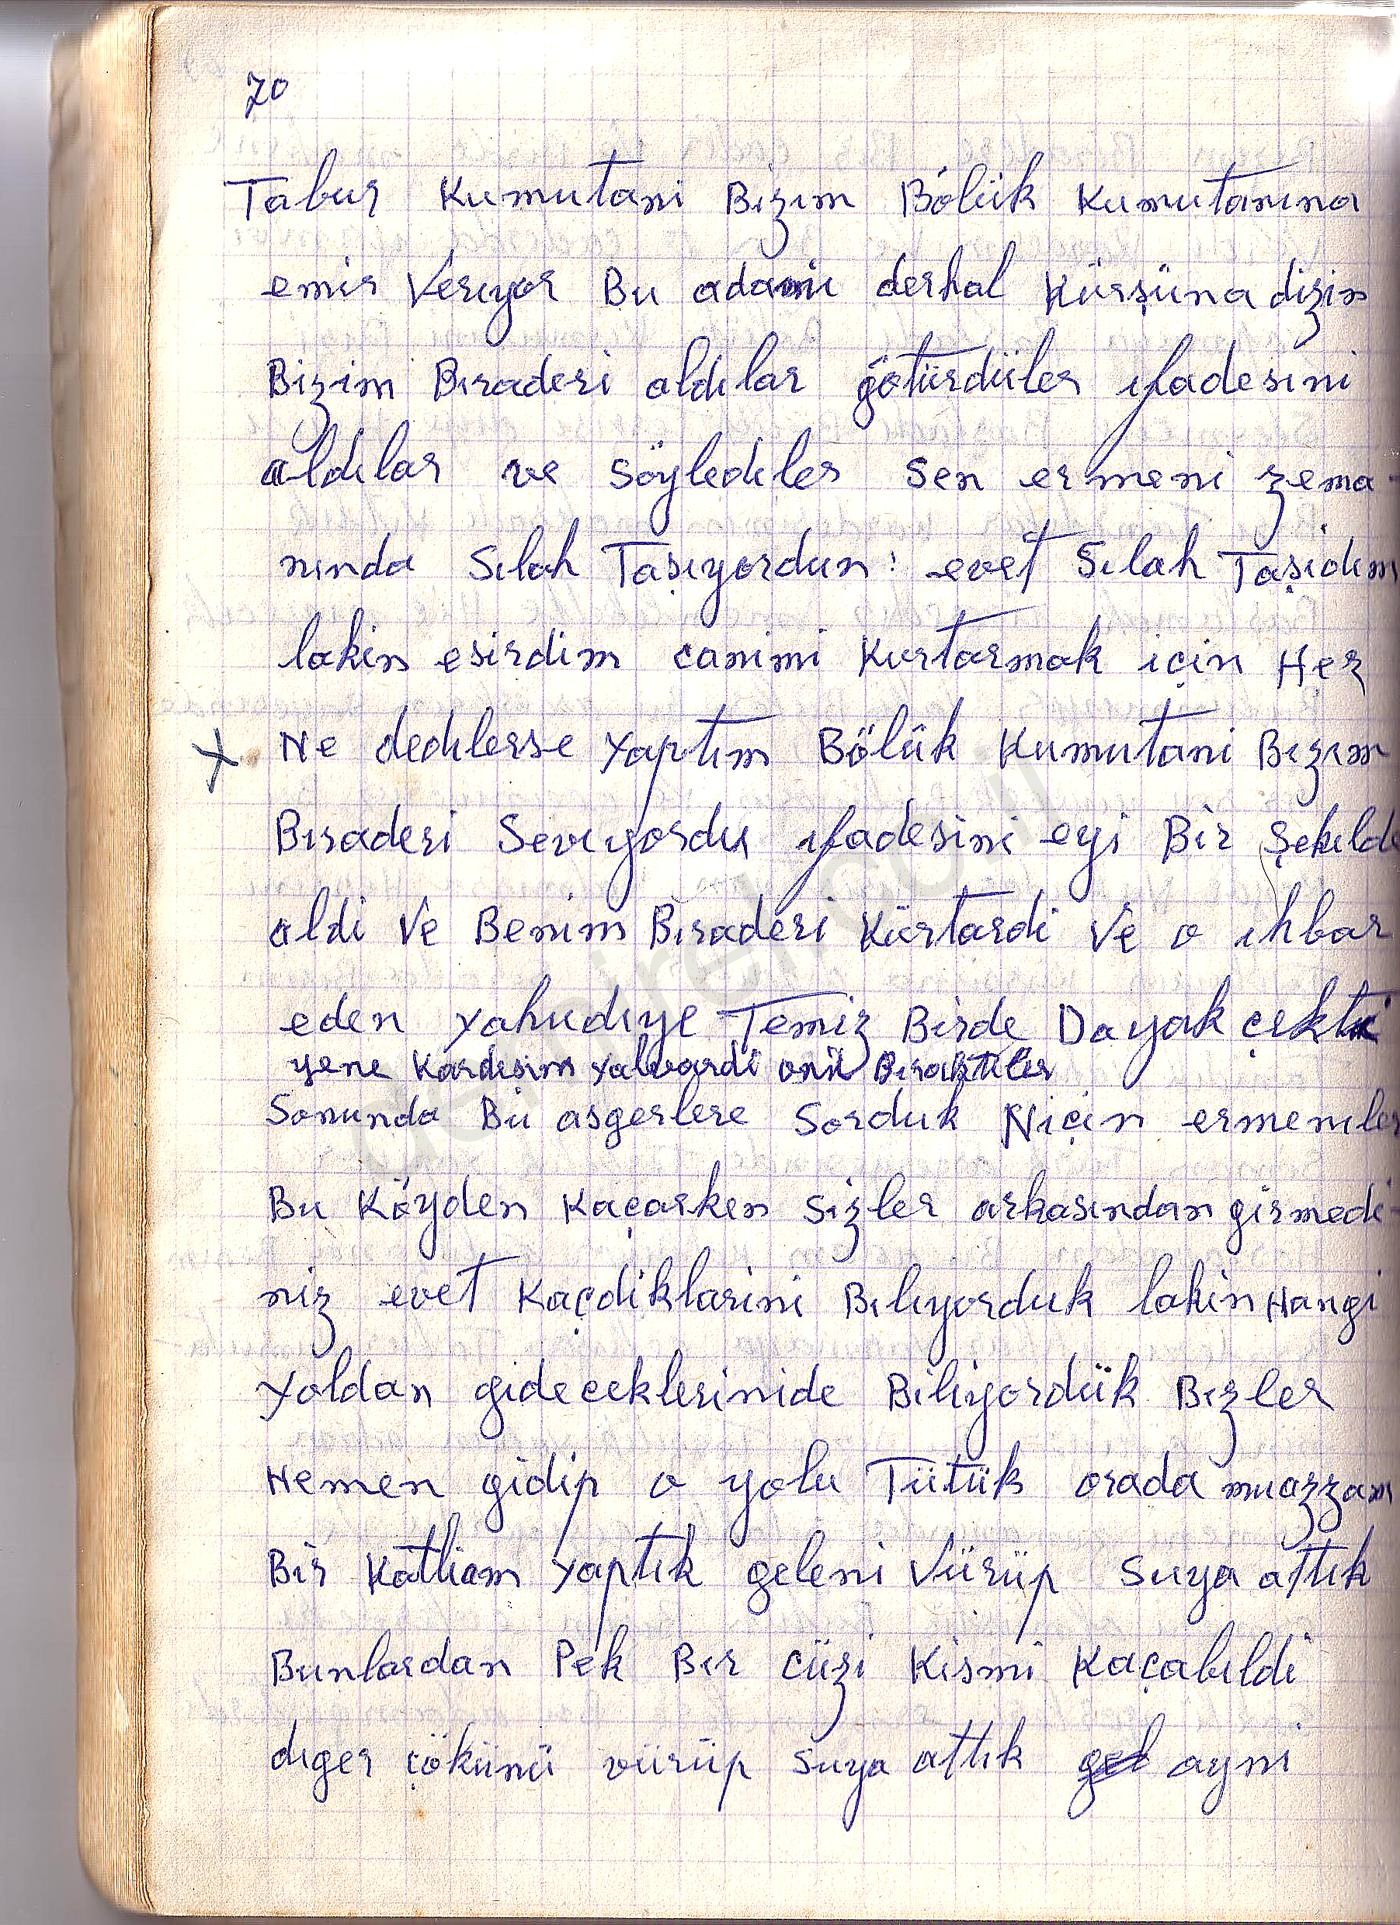 70
Tabur Kumutani Bizim Bölük Kumutanına
emir Veriyor Bu adami derhal Kürşüna dizin
Bizim Bıraderi aldılar götürdüler ıfadesıni
aldılar ve söyledıler sen ermeni zema-
nında Sılah Taşıyordun: evet Sılah Taşidım
lakin esirdim canimi Kurtarmak için Her
x Ne dedılerse yaptım Bölük Kumutani Bızım
Bıraderi Sevıyordu ıfadesini eyi Bir Şekılde
aldi Ve Benim Bıraderi Kürtardi Ve o ıhbar
eden yahudıye Temiz Birde Dayak çekti
yene Kardeşim yalvardi onü Bıraktıler
Sonunda Bu asgerlere Sorduk Niçin ermenıler
Bu Köyden Kaçarken Sizler arkasından girmedi-
niz evet Kaçdiklarini Bılıyorduk lakin Hangi
yoldan gideceklerinide Biliyordük Bızler
Hemen gidip o yolu Tütük orada muazzam
Bir Katliam yaptık geleni Vürüp suya attık
Bunlardan Pek Bır cüzi Kismi Kaçabıldi
dıger çökünü vürüp suya attık ayni
demirel.co.il